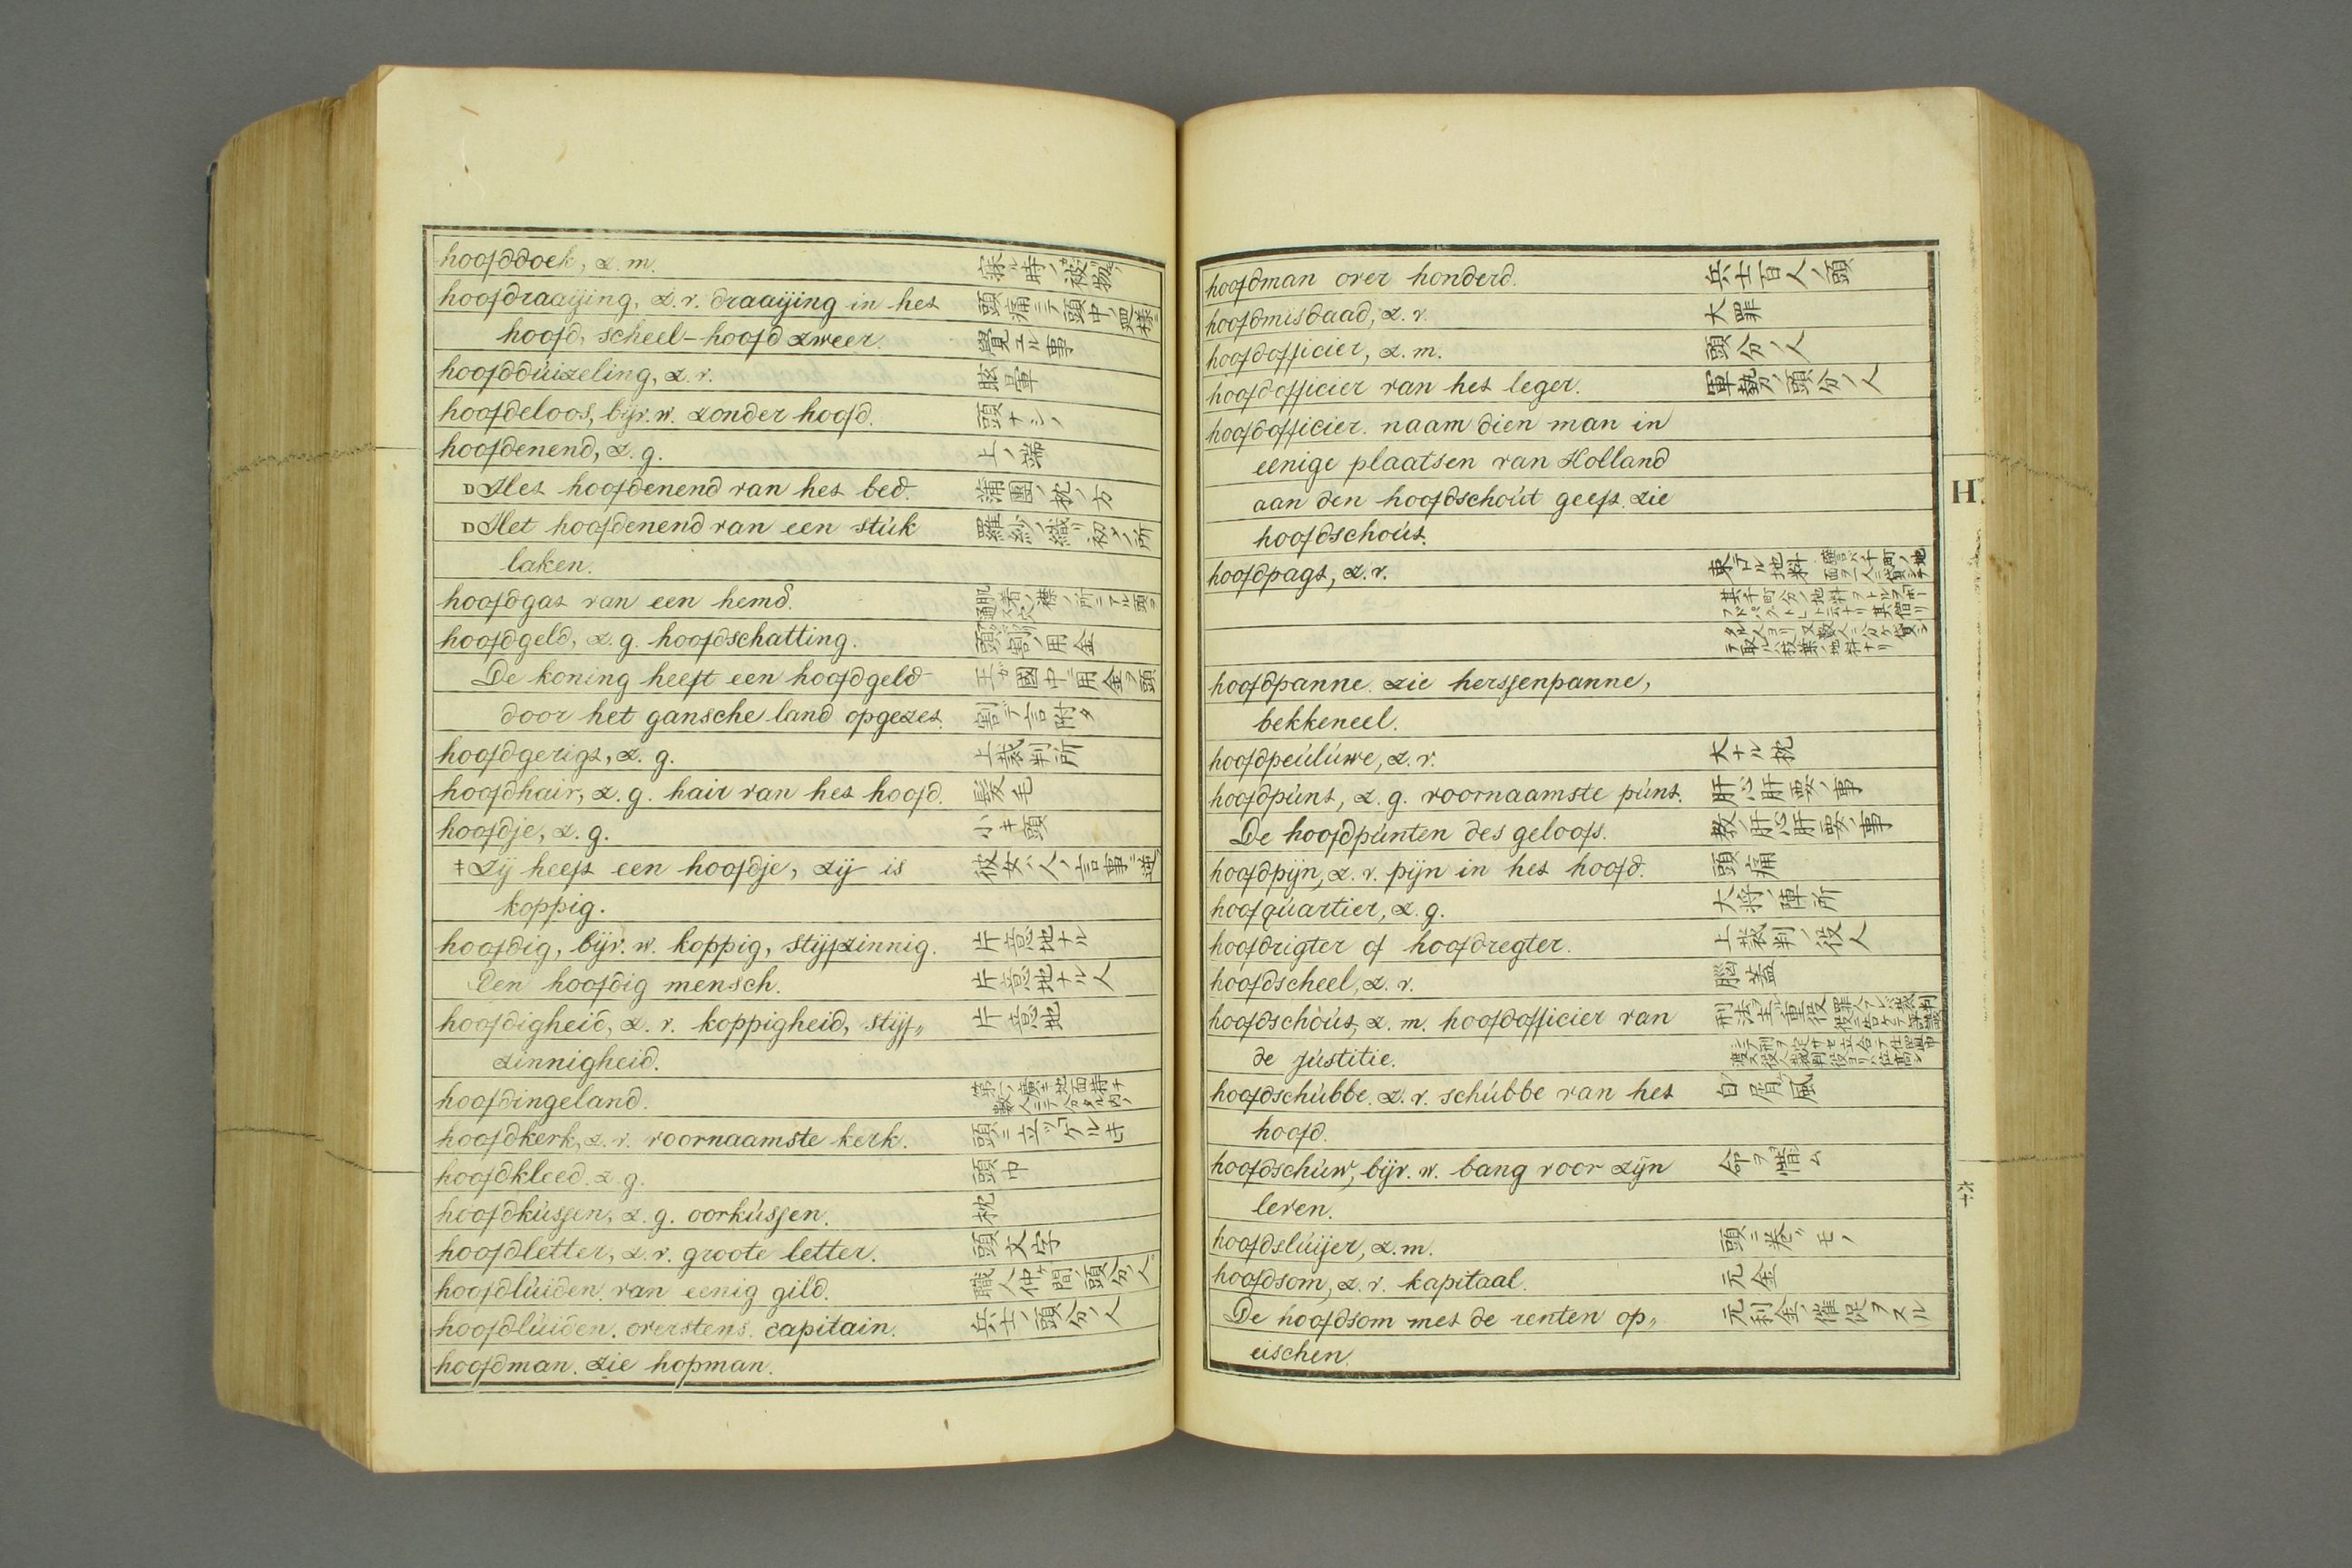 hoofddoek, z. m. 寐ル時ノ被物
hoofdraaijing, z. v. draaijing in het 頭痛ニテ頭中ノ廻様ニ
hoofd, scheel-hoofd zweer. 覺エル事
hoofddúizeling, z. v. 眩暈
hoofdeloos, bijv. w. zonder hoofd. 頭ナシノ
hoofdenend, z. g. 上ノ端
D Het hoofdenend van het bed. 蒲團ノ枕ノ方
D Het hoofdenend van een stúk 羅紗ノ織リ初メノ所
laken.
hoofdgat van een hemd.
hoofdgeld, z. g. hoofdschatting. 頭割ノ用金
De koning heeft een hoofdgeld 王ガ國中ニ用金ヲ頭
door het gansche land opgezet. 割テ言附タ
hoofdgerigt, z. g. 上裁判所
hoofdhair, z. g. hair van het hoofd. 髮毛
hoofdje, z. g. 小キ頭
‡ Zij heeft een hoofdje, zij is 彼女ハ人ノ言事ニ逆フ
koppig.
hoofdig, bijv. w. koppig, stijfzinnig. 片意地ナル
Een hoofdig mensch. 片意地ナル人
hoofdigheid, z. v. koppigheid, stijf„ 片意地
zinnigheid.
hoofdingeland.
hoofdkerk, z. v. voornaamste kerk.
hoofdkleed. z. g. 頭巾
hoofdkússen, z. g. oorkússen. 枕
hoofdletter, z. v. groote letter. 頭文字
hoofdlúiden. van eenig gild. 職人仲ヶ間ノ頭分ノ人
hoofdlúiden. overstens. capitain. 兵士ノ頭分ノ人
hoofdman. zie hopman.
hoofdman over honderd. 兵士百人ノ頭
hoofdmisdaad, z. v. 大罪
hoofdofficier, z. m. 頭分ノ人
hoofdofficier van het leger. 軍勢ノ頭分ノ人
hoofdofficier. naam dien man in
eenige plaatsen van Holland
aan den hoofdschoút geeft. zie
hoofdschoút.
hoofdpagt, z. v.
hoofdpanne. zie herssenpanne,
bekkeneel.
hoofdpeúlúwe, z. v. 大ナル枕
hoofdpúnt, z. g. voornaamste púnt. 肝心肝要ノ事
De hoofdpúnten des geloofs. 教ノ肝心肝要ノ事
hoofdpijn, z. v. pijn in het hoofd. 頭痛
hoofqúartier, z. g. 大将ノ陣所
hoofdrigter of hoofdregter. 上裁判ノ役人
hoofdscheel, z. v. 腦蓋
hoofdschoút, z. m. hoofdofficier van
de jústitie.
hoofdschúbbe. z. v. schúbbe van het 白屑風
hoofd.
hoofdschúw, bijv. w. bang voor zijn 命ヲ惜ム
leven.
hoofdslúijer, z. m. 頭ニ巻ツモノ
hoofdsom, z. v. kapitaal. 元金
De hoofdsom met de renten op„ 元利金ノ催促ヲスル
eischen.
H.